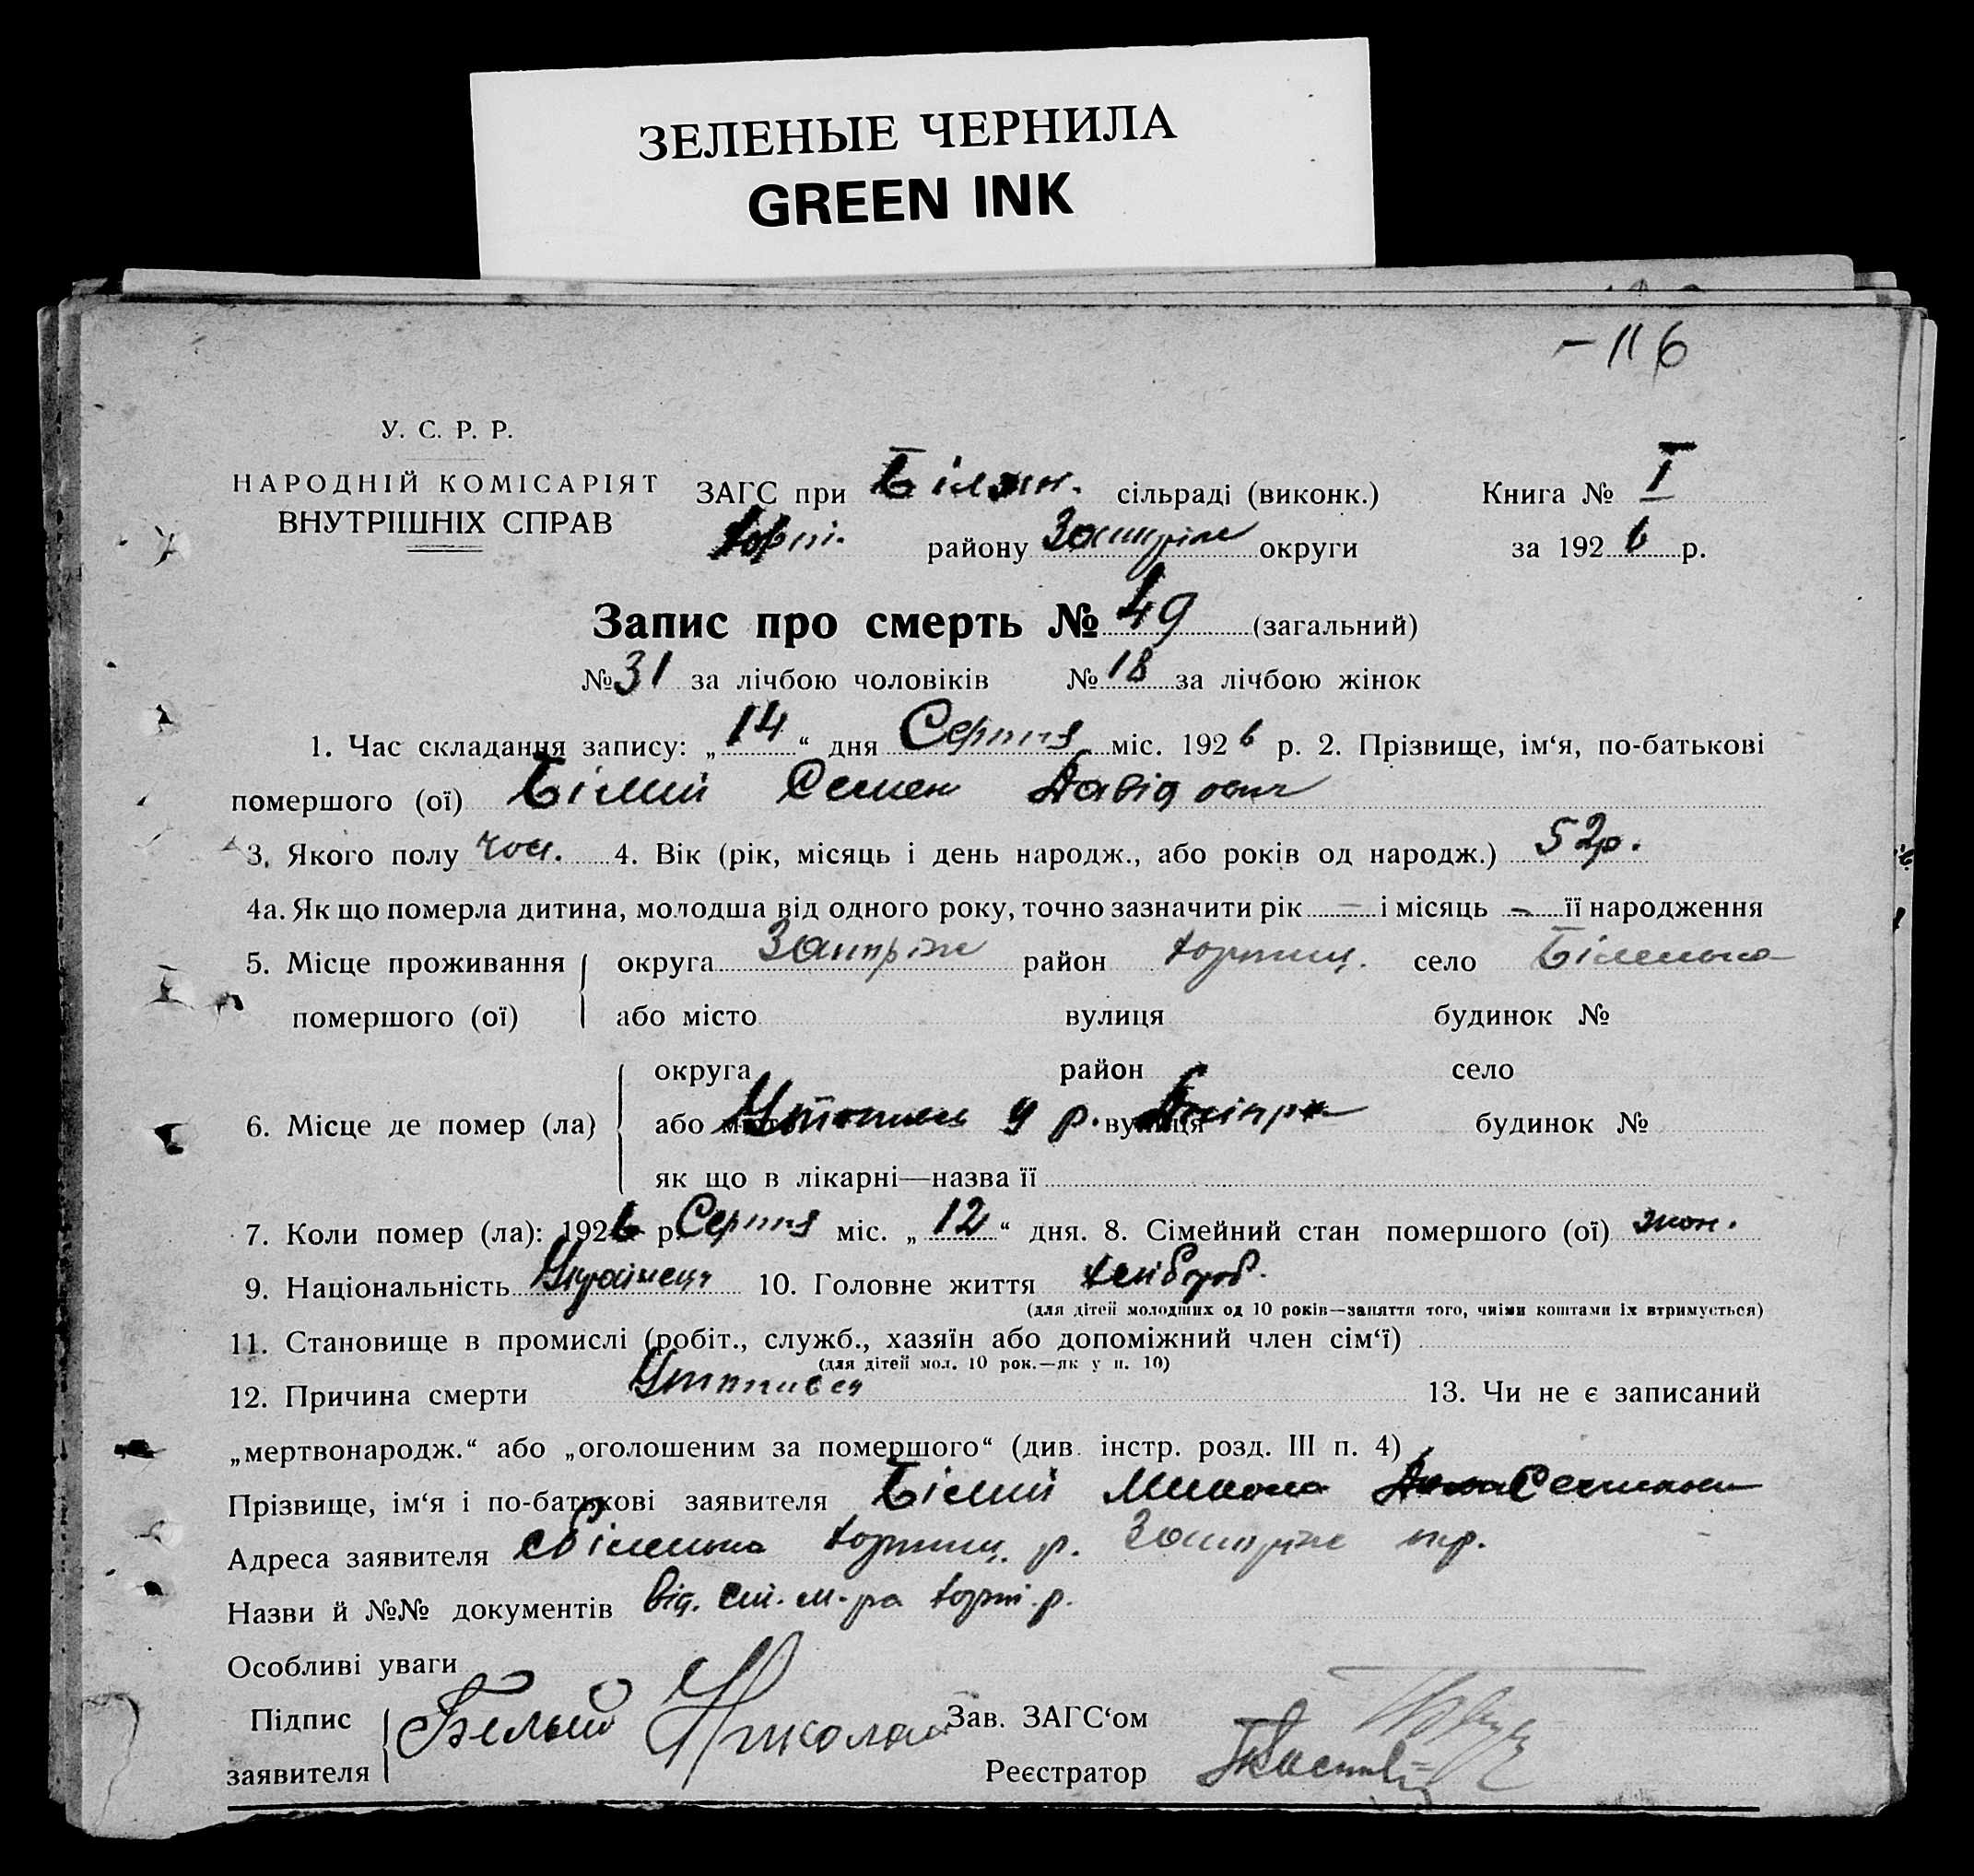 ЗЕЛЕНЫЕ ЧЕРНИЛА
GREEN INK
-116
У. С. Р. Р.
НАРОДНІЙ КОМІСАРІЯТ
ВНУТРІШНІХ СПРАВ
ЗАГС при сільраді (виконк.) Книга № I
району округи за 1926 р.
Запис про смерть № 49 (загальний)
№ 31 за лічбою чоловіків № 18 за лічбою жінок
1. Час складання запису: „14“ дня Серпня міс. 1926 р. 2. Прізвище, ім‘я, по-батькові
помершого (ої) Білий Семен Давідович
3. Якого полу чол. 4. Вік (рік, місяць і день народж., або років од народж.) 52р.
4а. Як що померла дитина, молодша від одного року, точно зазначити рік – і місяць – її народження
5. Місце проживання округа район село Біленька
помершого (ої) або місто вулиця будинок №
округа район село
6. Місце де помер (ла) або місто вулиця будинок № у р. Дніпрі
як що в лікарні—назва її
7. Коли помер (ла): 1926 р. Серпня міс. „12“ дня. 8. Сімейний стан помершого (ої) жон.
9. Національність Українець 10. Головне життя хлібороб.
(для дітей молодших од 10 років—заняття того, чиїми коштами їх втримується)
11. Становище в промислі (робіт., служб., хазяїн або допоміжний член сім‘ї)
(для дітей мол. 10 рок.—як у п. 10)
12. Причина смерти Утопився 13. Чи не є записаний
„мертвонародж.“ або „оголошеним за помершого“ (див. інстр. розд. III п. 4)
Прізвище, ім‘я і по-батькові заявителя Білий Микола
Адреса заявителя с Біленька Хортиц. р.
Назви й №№ документів
Особливі уваги
Підпис Белый Николай Зав. ЗАГС‘ом
заявителя Реєстратор